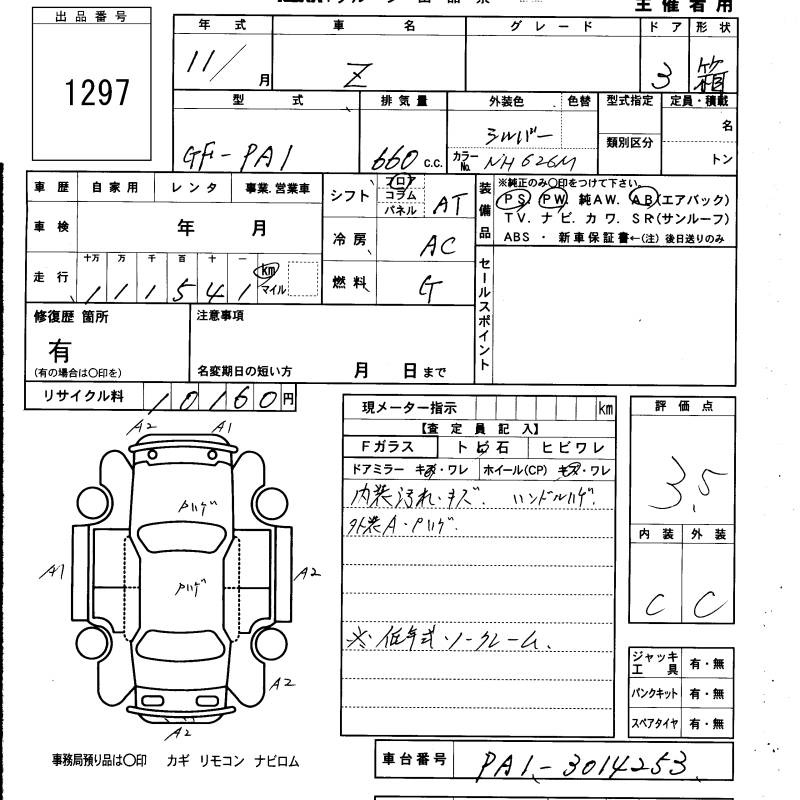 主催者用
出品番号
1297
年式 車名 グレード ドア 形状
11/ 月 Z 3 箱
型式 排気量 外装色 色替 型式指定 定員・積載
類別区分
GF-PA1 660 c.c. シルバー カラーNo. NH626M 名 トン
車歴 自家用 レンタ 事業.営業車
車検 年 月
走行 十万 万 千 百 十 一
111541 km マイル
シフト フロア コラム パネル AT
冷房 AC
燃料 G
装備品
※純正のみ〇印をつけて下さい。
PS. PW. 純AW. AB(エアバック)
TV. ナビ. カワ. SR(サンルーフ)
ABS ・ 新車保証書←(注) 後日送りのみ
セールスポイント
修復歴 箇所
有
(有の場合は〇印を)
注意事項
名変期日の短い方 月 日まで
リサイクル料 10160円
現メーター指示 km
【査定員記入】
Fガラス トビ石 ヒビワレ
ドアミラー キズ・ワレ ホイール(CP) キズ・ワレ
内装汚れ・キズ. ハンドルハゲ.
外装A・Pハゲ.
※低年式・ノークレーム.
評価点
3.5
内装 外装
C C
A2 A1
Pハゲ
A1 Pハゲ A2
A2
A2
ジャッキ工具 有・無
パンクキット 有・無
スペアタイヤ 有・無
事務局預り品は〇印 カギ リモコン ナビロム
車台番号 PA1-3014253